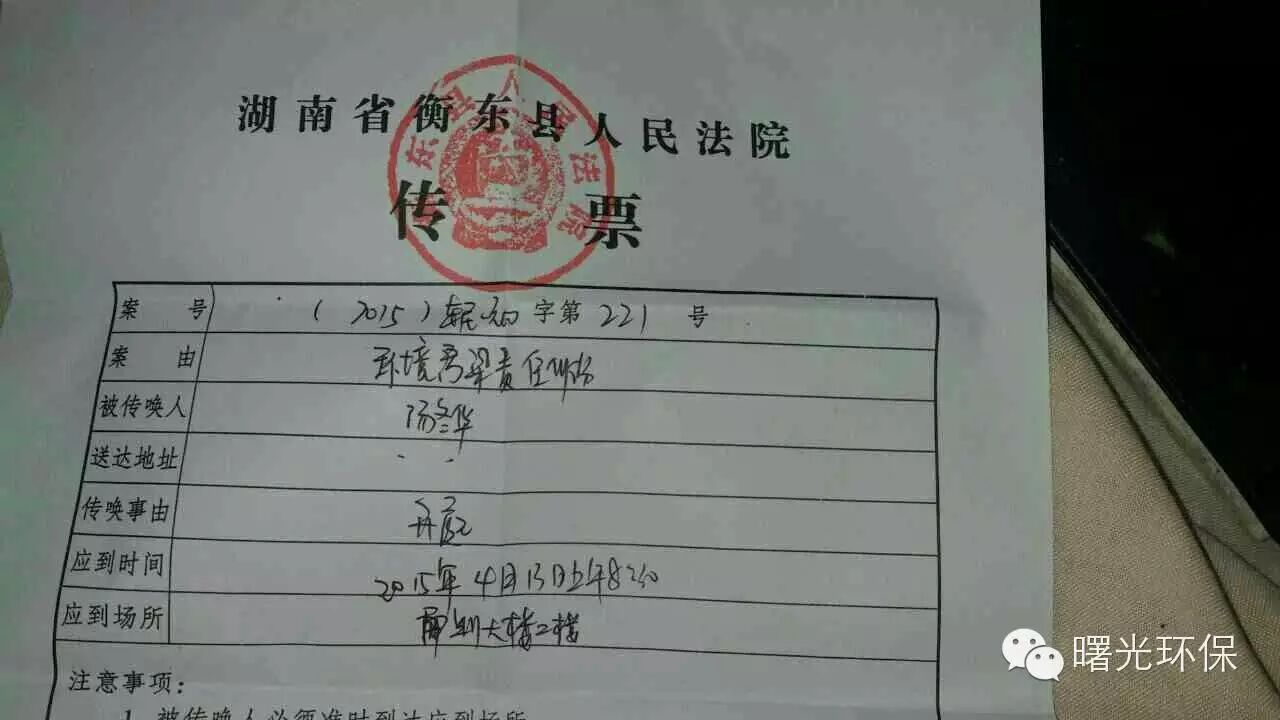 湖南省衡东县人民法院
传票
案号 (2015)东民初字第221号
案由 环境污染责任纠纷
被传唤人
送达地址
传唤事由 开庭
应到时间 2015年4月13日上午8:30
应到场所 审判大楼二楼
注意事项:
1. 被传唤人必须准时到达应到场所
曙光环保